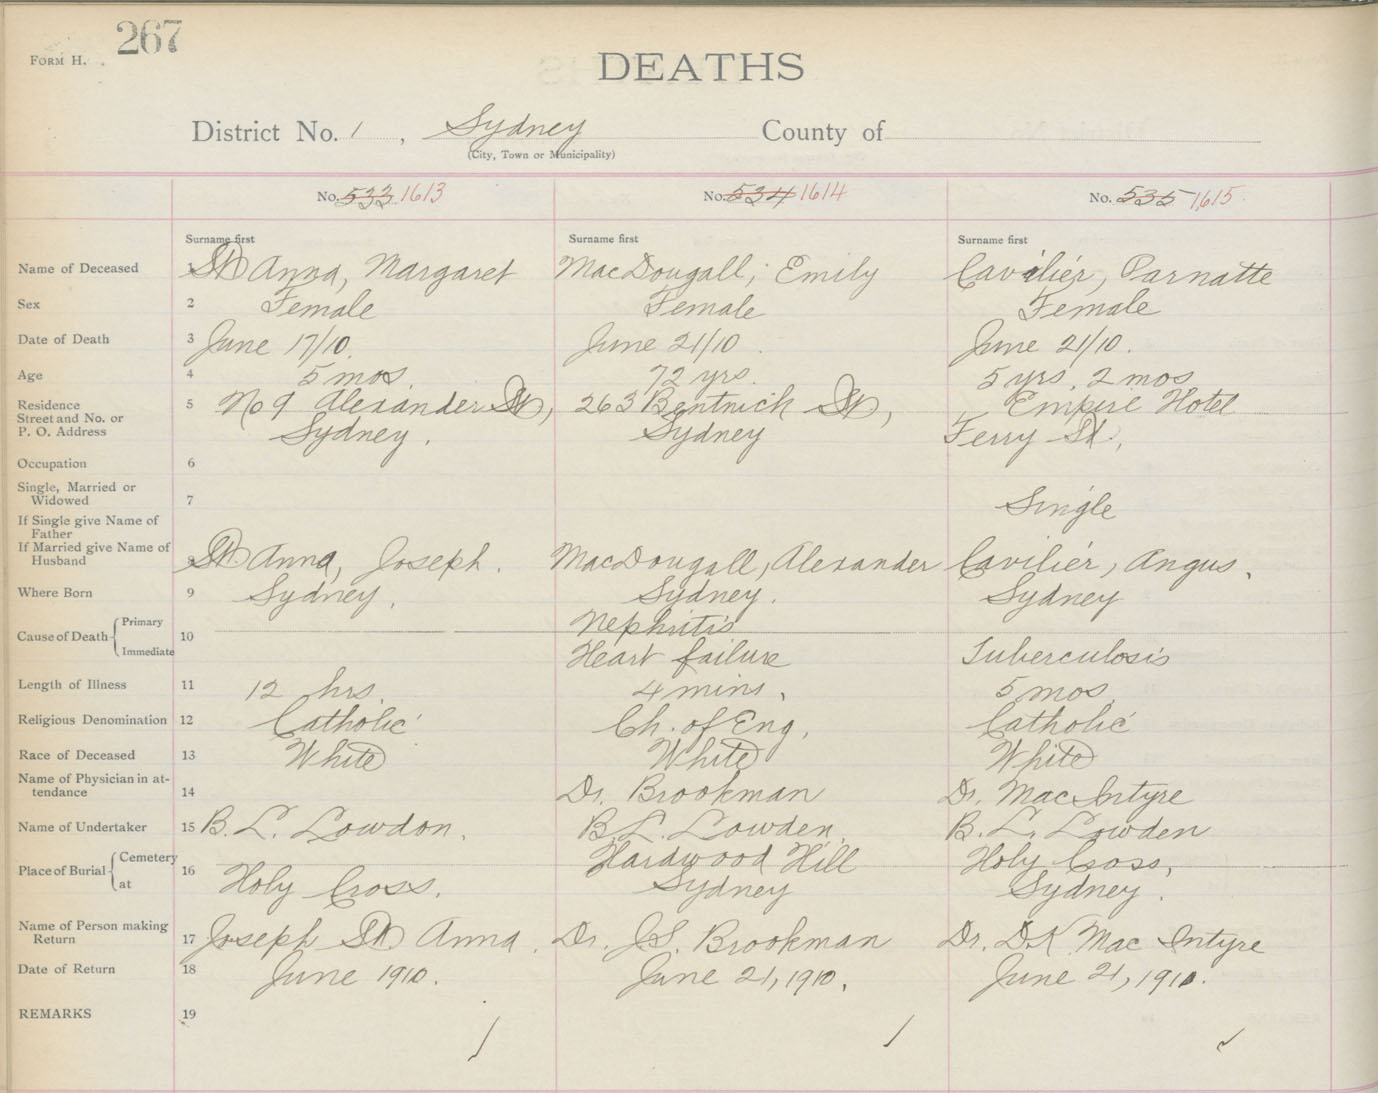 267
FORM H.
DEATHS
District No. 1, Sydney County of
(City, Town or Municipality)
No. 533 1613 No. 534 1614 No. 535 1615
Surname first Surname first Surname first
Name of Deceased 1 St Anna, Margaret MacDougall, Emily Cavilier, Parnatte
Sex 2 Female Female Female
Date of Death 3 June 17/10. June 21/10. June 21/10.
Age 4 5 mos. 72 yrs. 5 yrs, 2 mos
Residence 5 No 9 Alexander St, 263 Bentnick St, Empire Hotel
Street and No. or
P. O. Address Sydney. Sydney Ferry St,
Occupation 6
Single, Married or
Widowed 7 Single
If Single give Name of
Father
If Married give Name of
Husband 8 St Anna, Joseph. MacDougall, Alexander Cavilier, Angus.
Where Born 9 Sydney. Sydney. Sydney
Cause of Death { Primary Nephritis
10
Immediate Heart failure Tuberculosis
Length of Illness 11 12 hrs. 4 mins. 5 mos.
Religious Denomination 12 Catholic Ch. of Eng. Catholic
Race of Deceased 13 White White White
Name of Physician in at-
tendance 14 Dr. Brookman Dr. MacIntyre
Name of Undertaker 15 B. L. Lowdon. B. L. Lowden. B. L. Lowden
Place of Burial { Cemetery Hardwood Hill Holy Cross,
16
at Holy Cross. Sydney Sydney.
Name of Person making
Return 17 Joseph St Anna. Dr. J.S. Brookman Dr. D.K. Mac Intyre
Date of Return 18 June 1910. June 21, 1910. June 21, 1910.
REMARKS 19